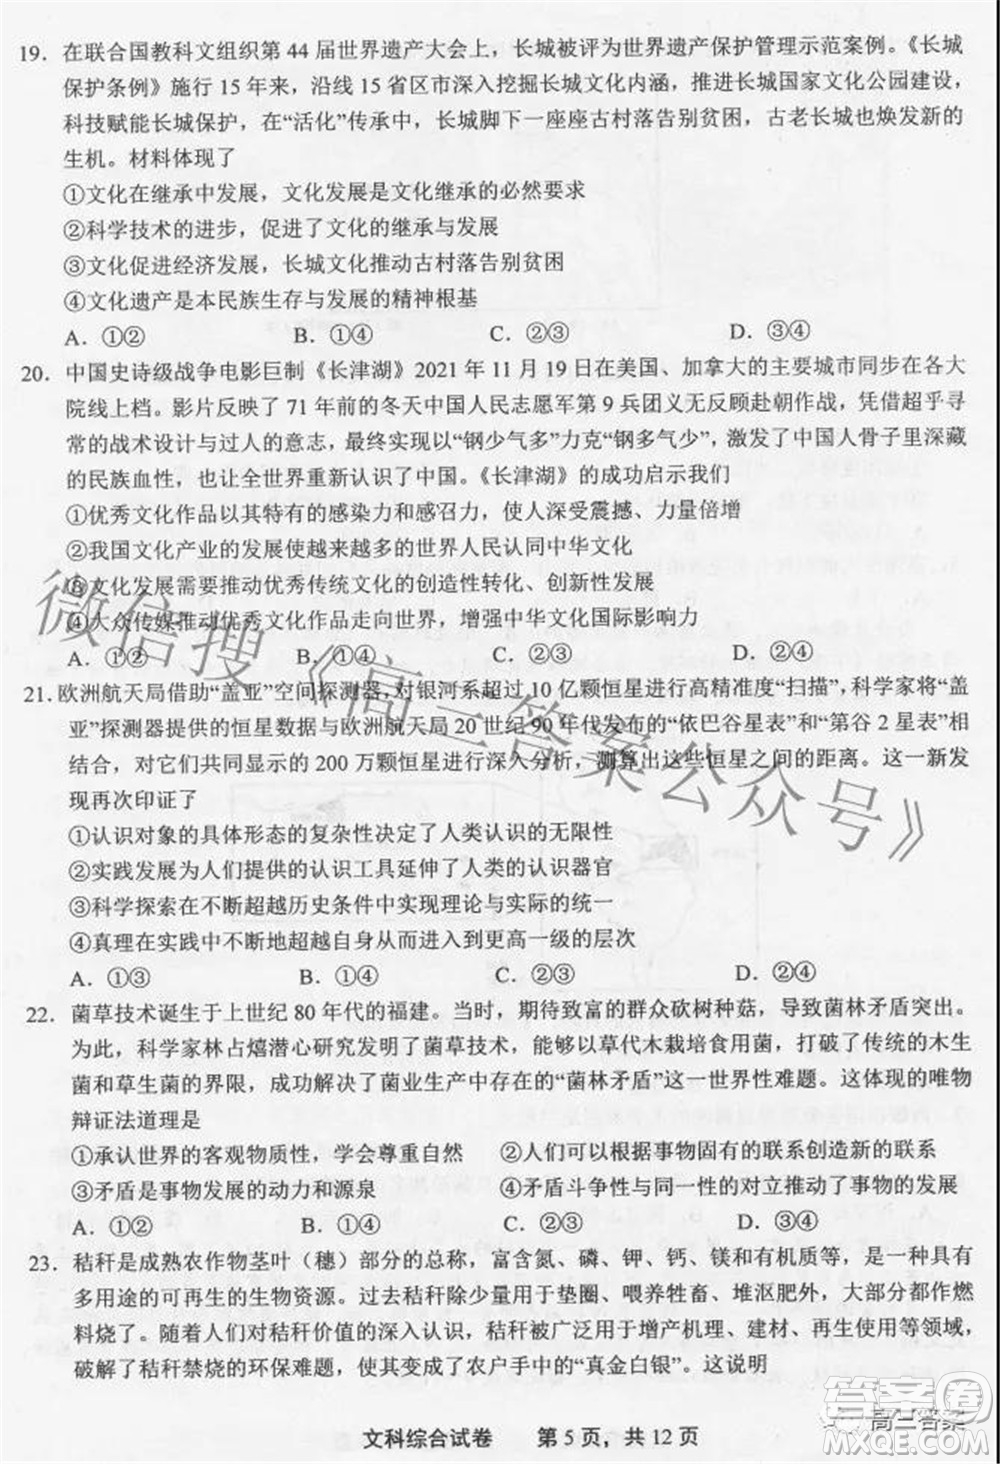 19．在联合国教科文组织第 44 届世界遗产大会上，长城被评为世界遗产保护管理示范案例。《长城
保护条例》施行 15 年来，沿线 15 省区市深入挖掘长城文化内涵，推进长城国家文化公园建设，
科技赋能长城保护，在“活化”传承中，长城脚下一座座古村落告别贫困，古老长城也焕发新的
生机。材料体现了
①文化在继承中发展，发展是文化继承的必然要求
②科学技术的进步，促进了文化的继承与发展
③文化促进经济发展，长城文化推动古村落告别贫困
④文化遗产是本民族生存与发展的精神根基
A．①② B．①④ C．②③ D．③④
20．中国史诗级战争电影巨制《长津湖》2021 年 11 月 19 日在美国、加拿大的主要城市同步在各大
院线上档。影片反映了 71 年前的冬天中国人民志愿军第 9 兵团义无反顾赴朝作战，凭借超乎寻
常的战术设计与过人的意志，最终实现以“钢少气多”力克“钢多气少”，激发了中国人骨子里深藏
的民族血性，也让全世界重新认识了中国。《长津湖》的成功启示我们
①优秀文化作品以其特有的感染力和感召力，使人深受震撼、力量倍增
②我国文化产业的发展使越来越多的世界人民认同中华文化
③文化发展需要推动优秀传统文化的创造性转化、创新性发展
④大众传媒推动优秀文化作品走向世界，增强中华文化国际影响力
A．①② B．①④ C．②③ D．③④
21．欧洲航天局借助“盖亚”空间探测器，对银河系超过 10 亿颗恒星进行高精准度“扫描”，科学家将“盖
亚”探测器提供的恒星数据与欧洲航天局 20 世纪 90 年代发布的“依巴谷星表”和“第谷 2 星表”相
结合，对它们共同显示的 200 万颗恒星进行深入分析，测算出这些恒星之间的距离。这一新发
现再次印证了
①认识对象的具体形态的复杂性决定了人类认识的无限性
②实践发展为人们提供的认识工具延伸了人类的认识器官
③科学探索在不断超越历史条件中实现理论与实际的统一
④真理在实践中不断地超越自我走向更高一级的层次
A．①③ B．①④ C．②③ D．②④
22．菌草技术诞生于上世纪 80 年代的福建。当时，期待致富的群众砍树种菇，导致菌林矛盾突出。
为此，科学家林占熺潜心研究发明了菌草技术，能够以草代木栽培食用菌，打破了传统的木生
菌和草生菌的界限，成功解决了菌业生产中存在的“菌林矛盾”这一世界性难题。这体现的唯物
辩证法道理是
①承认世界的客观物质性，学会尊重自然 ②人们可以根据事物固有的联系创造新的联系
③矛盾是事物发展的动力和源泉 ④矛盾斗争性与同一性的对立推动了事物的发展
A．①② B．①④ C．②③ D．③④
23．秸秆是成熟农作物茎叶（穗）部分的总称，富含氮、磷、钾、钙、镁和有机质等，是一种具有
多用途的可再生的生物资源。过去秸秆除少量用于垫圈、喂养牲畜、堆沤肥外，大部分都作燃
料烧了。随着人们对秸秆价值的深入认识，秸秆被广泛用于增产机理、建材、再生能源等领域，
破解了秸秆禁烧的环保难题，使其变成了农户手中的“真金白银”。这说明
文科综合试卷 第 5 页，共 12 页
微信搜《高三答案公众号》
答案圈
高三答案